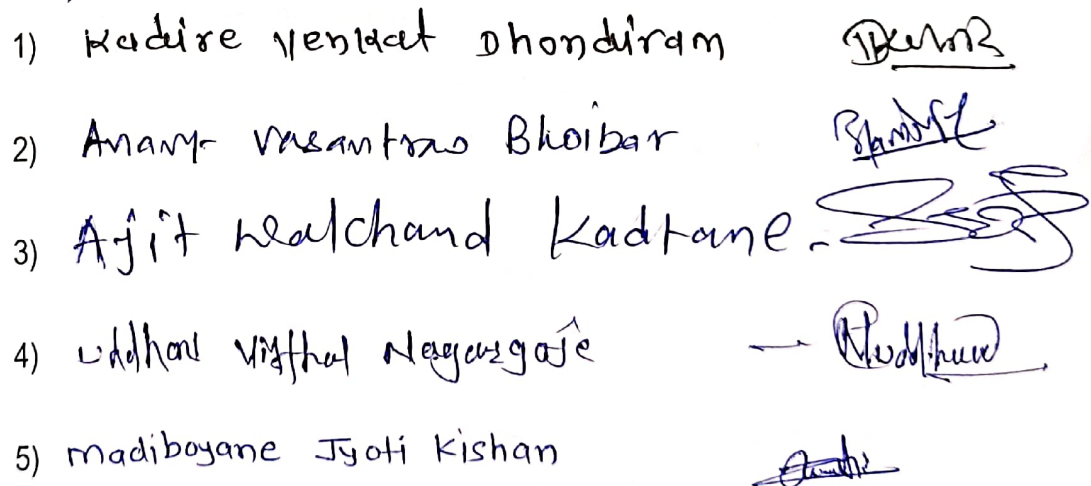 1) Kadire Venkat Dhondiram
2) Anany Vasantrao Bhoibar
3) Ajit Walchand Kadtane.
4) Uddhav Vitthal Nagargoje –
5) Madiboyane Jyoti Kishan